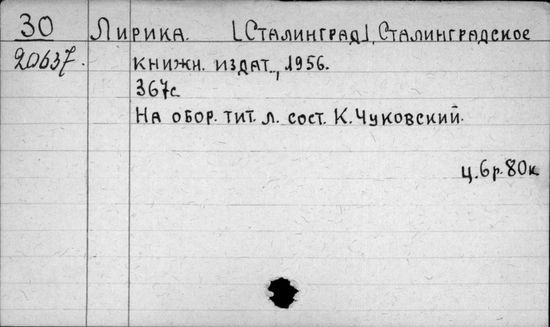 30 Лирика. [Сталинград], Сталинградское
20637. книжн. издат., 1956.
367с.
На обор. тит. л. сост. К. Чуковский.
ц. 6 р. 80 к